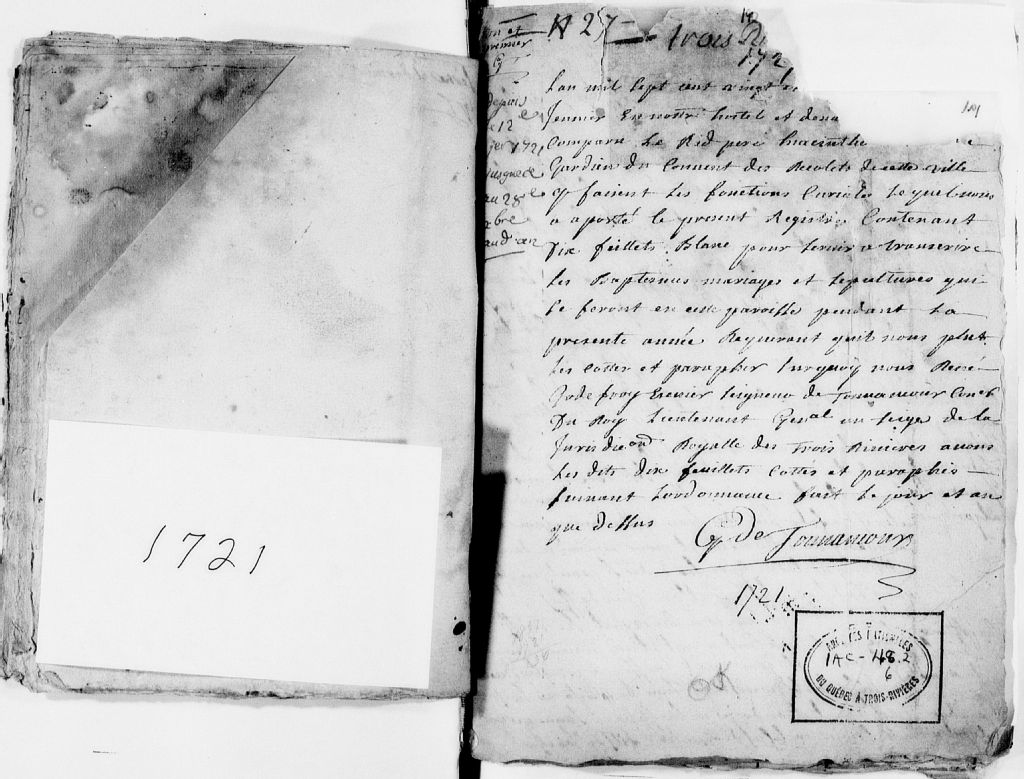 1721
N 27 trois
1721
premier
depuis
12
1721
jusques
au 28
bre
aud. an
Lan mil sept cent vingt
Janvier En nostre hostel et
Comparu Le Rnd pere hiacinthe
Gardien du Couvent des Recolets de cette ville
faisent Les fonctions Curiales Lequel nous
a aporté le present Registre Contenant
Dix feillets Blanc pour servir a transcrire
Les Baptesmes mariages et sepultures qui
se feront en cette paroisse pendant La
presente année Requerant quil nous plut
Les cotter et parapher surquoy nous René
Godefroy Escuier seigneur de Tonnancour Coner
Du Roy Lieutenant Gesnal au siege de la
Jurisdicaon Royalle des trois Rivieres avons
Les dits dix feuillets cottes et paraphés
suivant Lordonnance fait Le jour et an
que dessus
G de Tonnancour
1721
ARCHIVES NATIONALES
1AC-48.2
6
DU QUÉBEC À TROIS-RIVIÈRES